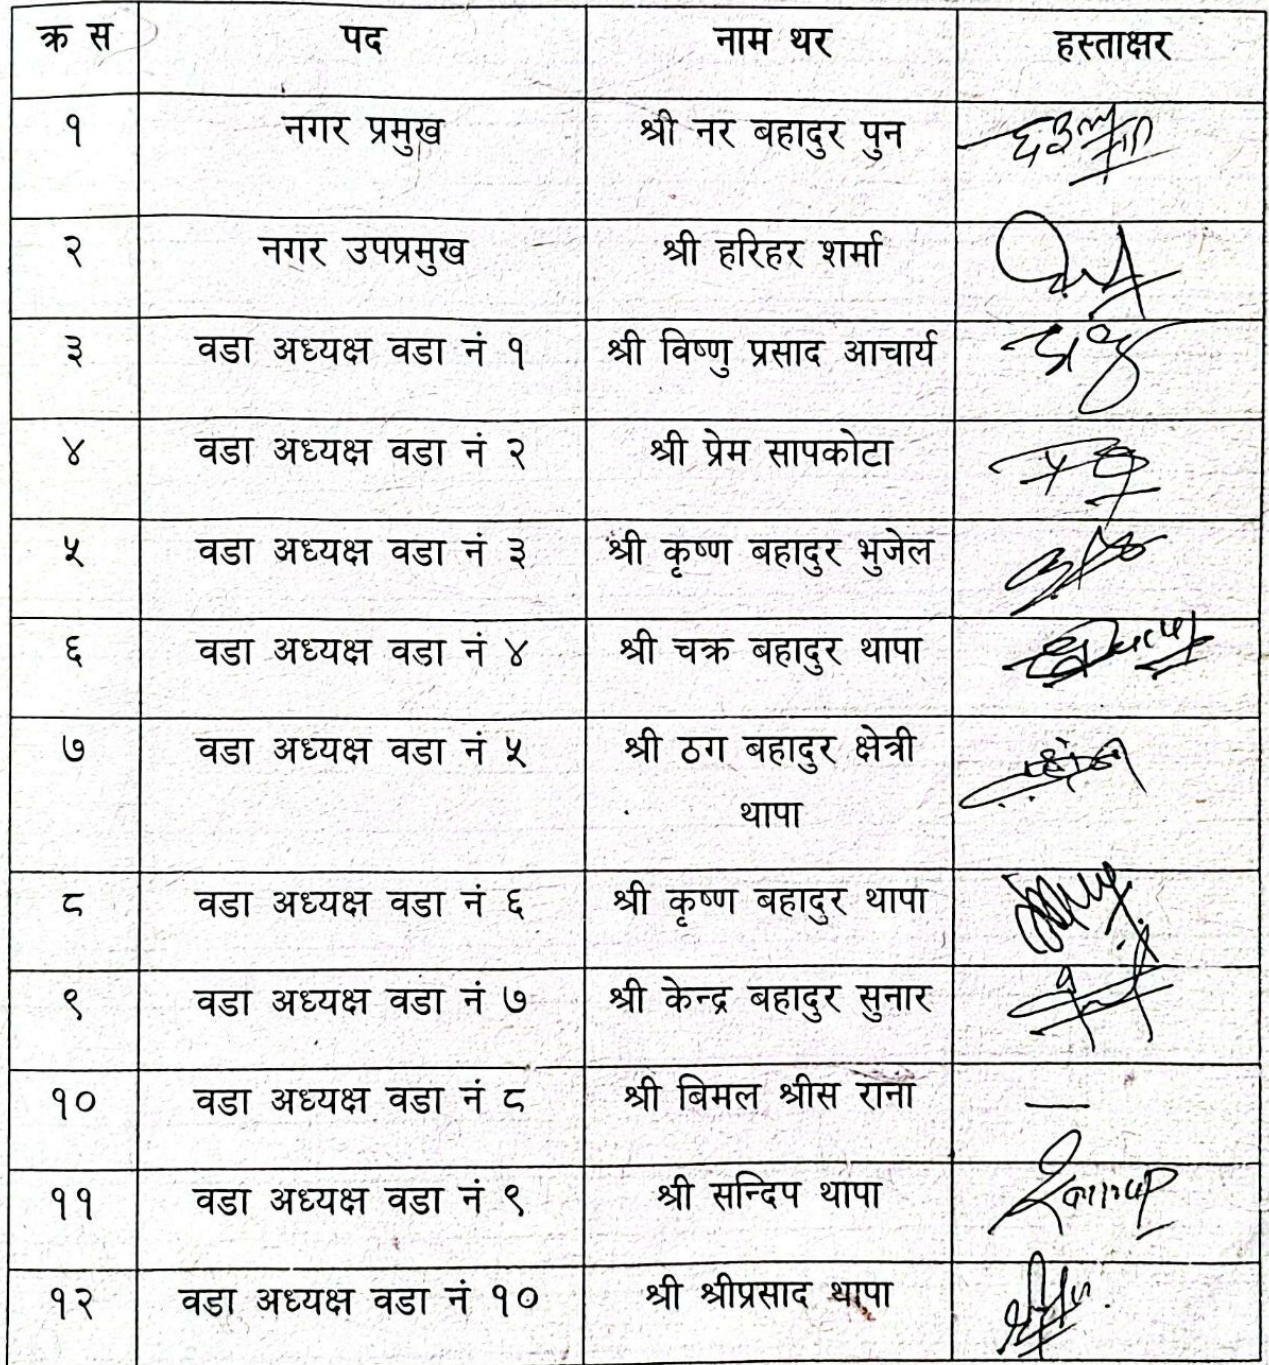 क्र स पद नाम थर हस्ताक्षर
१ नगर प्रमुख श्री नर बहादुर पुन
२ नगर उपप्रमुख श्री हरिहर शर्मा
३ वडा अध्यक्ष वडा नं १ श्री विष्णु प्रसाद आचार्य
४ वडा अध्यक्ष वडा नं २ श्री प्रेम सापकोटा
५ वडा अध्यक्ष वडा नं ३ श्री कृष्ण बहादुर भुजेल
६ वडा अध्यक्ष वडा नं ४ श्री चक्र बहादुर थापा
७ वडा अध्यक्ष वडा नं ५ श्री ठग बहादुर क्षेत्री
थापा
८ वडा अध्यक्ष वडा नं ६ श्री कृष्ण बहादुर थापा
९ वडा अध्यक्ष वडा नं ७ श्री केन्द्र बहादुर सुनार
१० वडा अध्यक्ष वडा नं ८ श्री बिमल श्रीस राना —
११ वडा अध्यक्ष वडा नं ९ श्री सन्दिप थापा
१२ वडा अध्यक्ष वडा नं १० श्री श्रीप्रसाद थापा